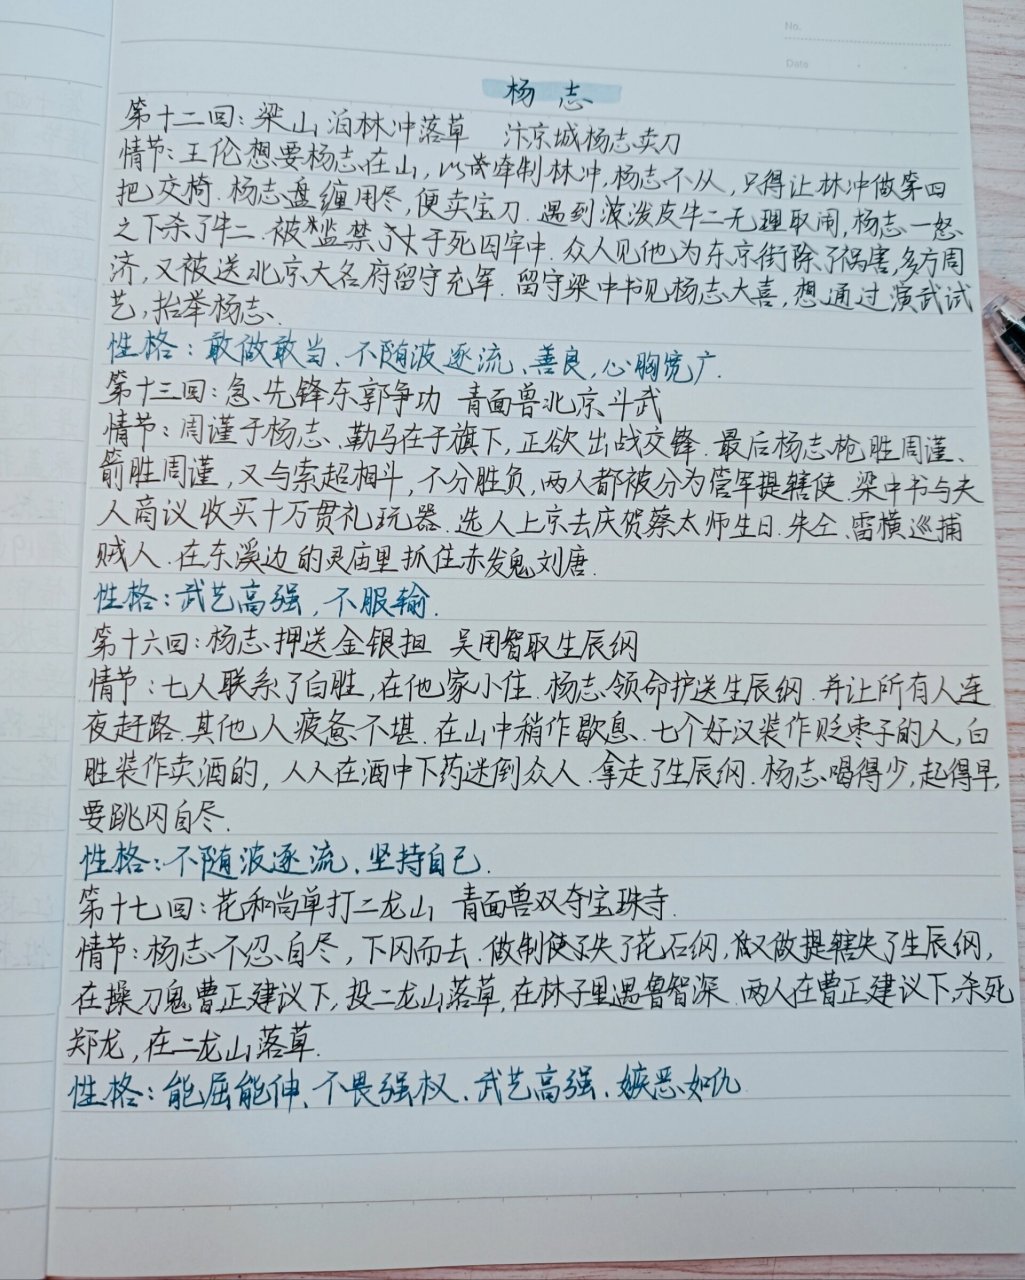 No.
Date
杨 志
第十二回：梁山泊林冲落草 汴京城杨志卖刀
情节：王伦想要杨志在山，以牵制林冲，杨志不从，只得让林冲做第四
把交椅.杨志盘缠用尽，便卖宝刀.遇到泼皮牛二无理取闹，杨志一怒
之下杀了牛二.被监禁了于死囚牢中.众人见他为东京街除了祸害，多方周
济，又被送北京大名府留守充军.留守梁中书见杨志大喜，想通过演武试
艺，抬举杨志.
性格：敢做敢当、不随波逐流、善良，心胸宽广.
第十三回：急先锋东郭争功 青面兽北京斗武
情节：周谨于杨志、勒马在于旗下，正欲出战交锋.最后杨志枪胜周谨、
箭胜周谨，又与索超相斗，不分胜负，两人都被分为管军提辖使.梁中书与夫
人商议收买十万贯礼玩器.选人上京去庆贺蔡太师生日.朱仝、雷横巡捕
贼人.在东溪边的灵庙里抓住赤发鬼刘唐.
性格：武艺高强，不服输.
第十六回：杨志押送金银担 吴用智取生辰纲
情节：七人联系了白胜，在他家小住.杨志领命护送生辰纲.并让所有人连
夜赶路.其他人疲惫不堪.在山中稍作歇息.七个好汉装作贬枣子的人，白
胜装作卖酒的，人人在酒中下药迷倒众人.拿走了生辰纲.杨志喝得少，起得早，
要跳冈自尽.
性格：不随波逐流、坚持自己.
第十七回：花和尚单打二龙山 青面兽双夺宝珠寺.
情节：杨志不忍自尽，下冈而去.做制使失了花石纲，又做提辖失了生辰纲，
在操刀鬼曹正建议下，投二龙山落草，在林子里遇鲁智深.两人在曹正建议下，杀死
郑龙，在二龙山落草.
性格：能屈能伸、不畏强权、武艺高强、嫉恶如仇